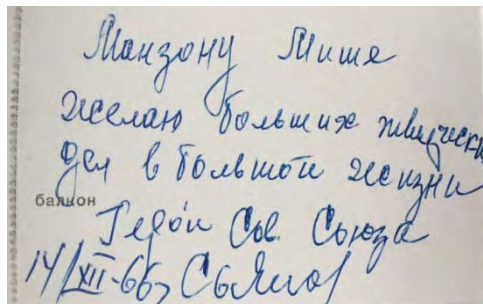 Манзону Мише
желаю больших творческих
дел в большой жизни
балкон
Герой Сов Союза
14/XII-66г Сьянов